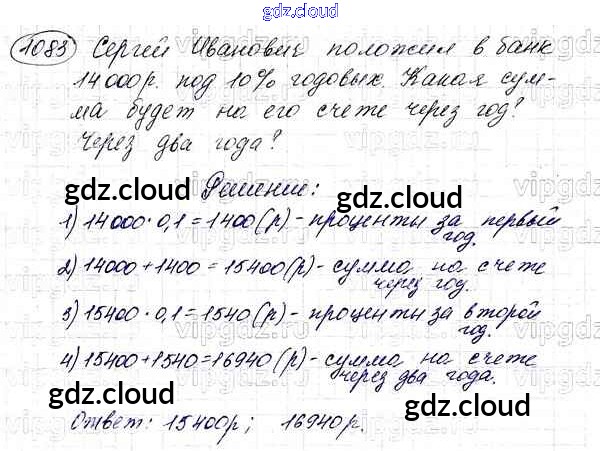 gdz.cloud
1083 Сергей Иванович положил в банк
14000р. под 10% годовых. Какая сум-
ма будет на его счете через год?
Через два года?
gdz.cloud gdz.cloud
Решение:
1) 14000·0,1=1400(р)-проценты за первый
год.
2) 14000+1400=15400(р)-сумма на счете
через год.
3) 15400·0,1=1540(р)-проценты за второй
год.
4) 15400+1540=16940(р)-сумма на счете
через два года.
gdz.cloud gdz.cloud
Ответ: 15400р; 16940р.